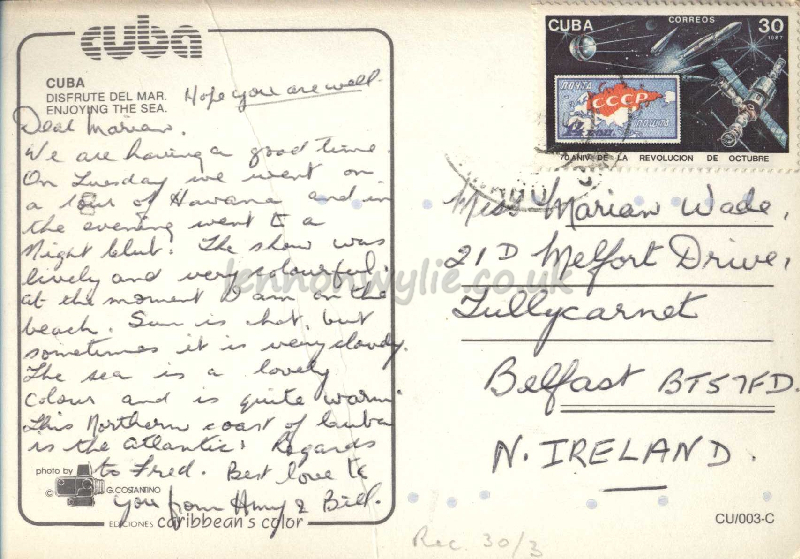 cuba
CUBA
DISFRUTE DEL MAR.
ENJOYING THE SEA.
Hope you are well.
Dear Marian,
We are having a good time.
On Tuesday we went on
a tour of Havana and in
the evening went to a
Night club. The show was
lively and very colourful.
at the moment I am on the
beach. Sun is hot, but
sometimes it is very cloudy.
The sea is a lovely
colour and is quite warm.
This Northern coast of Cuba
is the atlantic. Regards
to Fred. Best love to
you from Amy & Bill.
photo by
© G. COSTANTINO
EDICIONES caribbean's color
CUBA CORREOS 30
1987
ПОЧТА
СССР
ПОШТА
70 ANIV DE LA REVOLUCION DE OCTUBRE
Miss Marian Wade,
21D Melfort Drive,
Tullycarnet
Belfast BT57FD.
N. IRELAND.
CU/003-C
Rec. 30/3
lennonwylie.co.uk